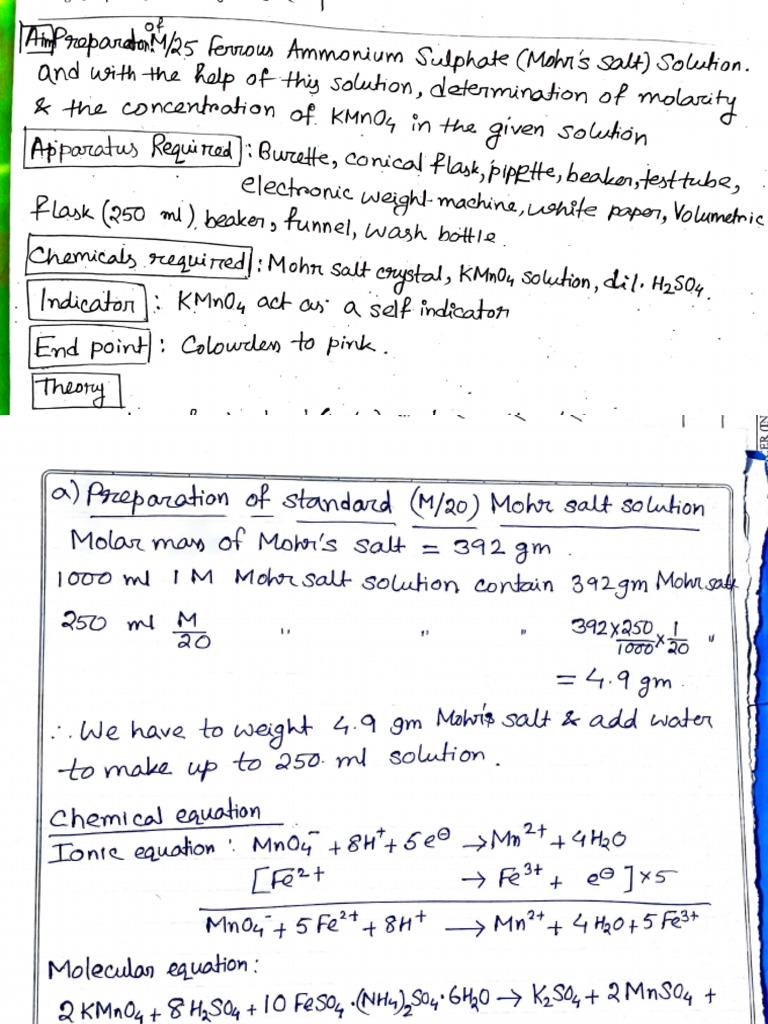 of
Aim Preparation M/25 Ferrous Ammonium Sulphate (Mohr's salt) Solution.
and with the help of this solution, determination of molarity
& the concentration of KMnO4 in the given solution
Apparatus Required : Burette, conical flask, pipette, beaker, test tube,
electronic weight machine, white paper, Volumetric
flask (250 ml), beaker, funnel, wash bottle.
Chemicals required : Mohr salt crystal, KMnO4 solution, dil. H2SO4.
Indicator : KMnO4 act as a self indicator
End point : Colourless to pink.
Theory
ER (IN
a) Preparation of standard (M/20) Mohr salt solution
Molar mass of Mohr's salt = 392 gm.
1000 ml 1 M Mohr salt solution contain 392 gm Mohr salt
250 ml M/20 " " " 392×250/1000 × 1/20 "
= 4.9 gm.
∴ We have to weight 4.9 gm Mohr's salt & add water
to make up to 250 ml solution.
Chemical equation
Ionic equation : MnO4⁻ + 8H⁺ + 5e⊖ → Mn²⁺ + 4H2O
[Fe²⁺ → Fe³⁺ + e⊖] ×5
MnO4⁻ + 5Fe²⁺ + 8H⁺ → Mn²⁺ + 4H2O + 5Fe³⁺
Molecular equation :
2KMnO4 + 8H2SO4 + 10FeSO4·(NH4)2SO4·6H2O → K2SO4 + 2MnSO4 +